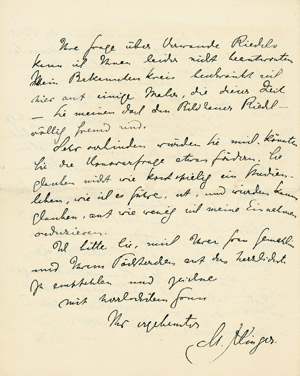 Ihre Frage über Verwandte Riedels
kann ich Ihnen leider nicht beantworten
Mein Bekanntenkreis beschränkt sich
hier auf einige Maler, die dieser Zeit
— Sie meinen doch den Bildhauer Riedel —
völlig fremd sind.
Sehr verbinden würden Sie mich, könnten
Sie die Honorarfrage etwas fördern. Sie
glauben nicht wie kostspielig ein Studien-
leben, wie ich es führe, ist, und werden kaum
glauben, auf wie wenig ich meine Einnahmen
reduzieren.
Ich bitte Sie, mich Ihrer Frau Gemahlin
und Ihrem auf das herzlichste
zu empfehlen und zeichne
mit herzlichstem Gruss
Ihr ergebenster
M. Klinger.